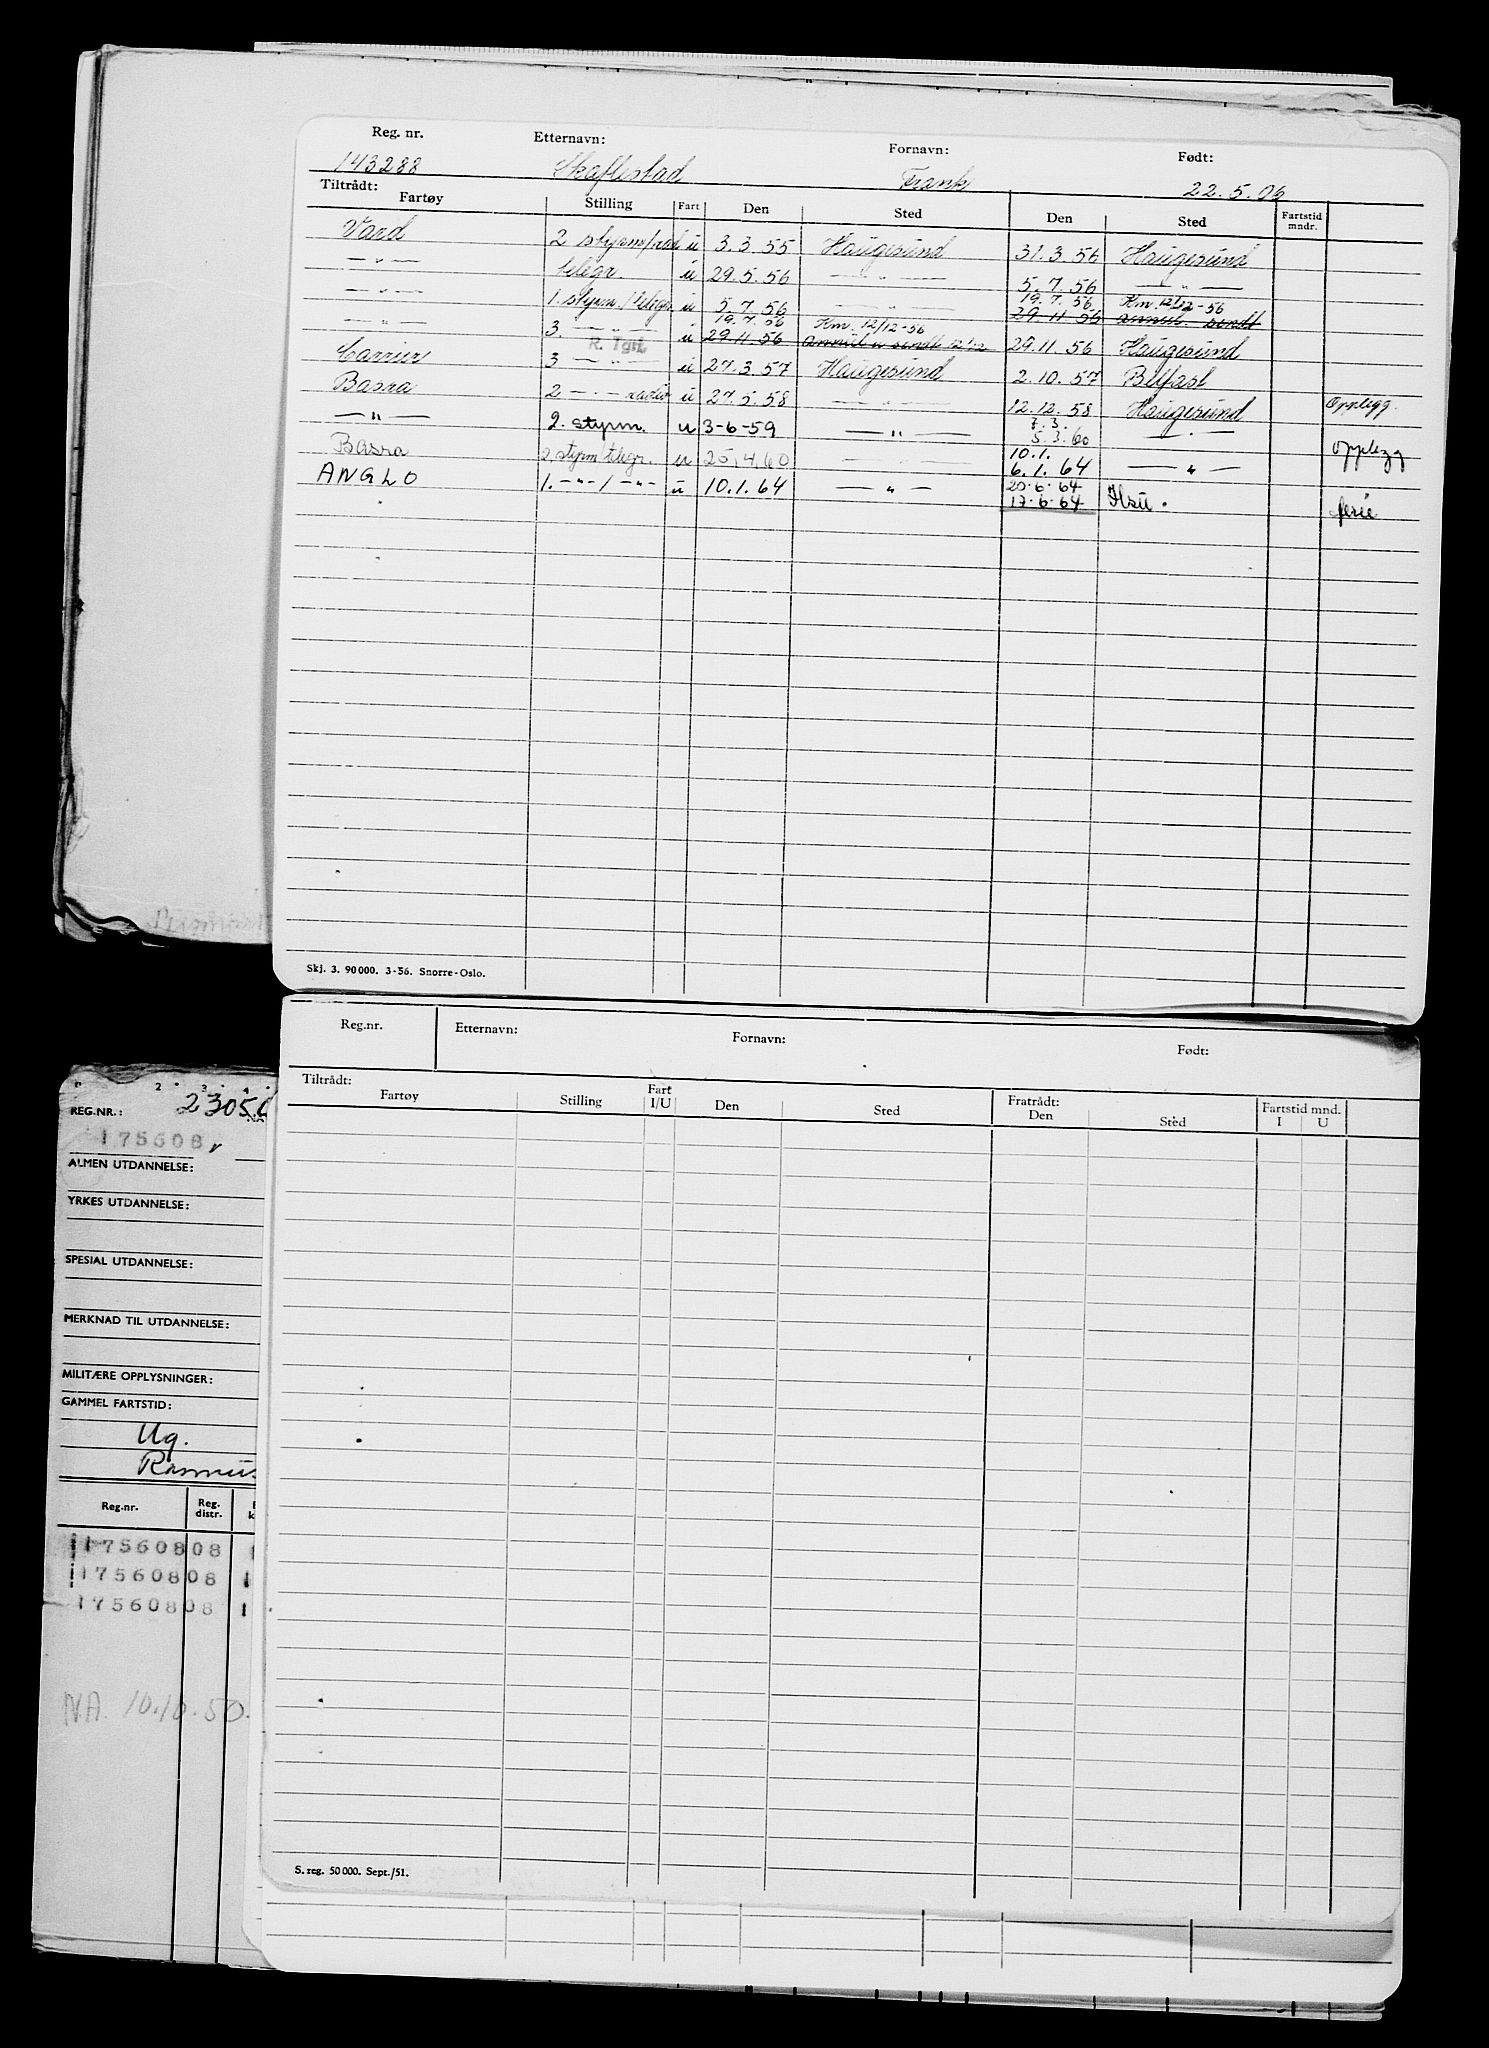 Reg. nr. Etternavn: Fornavn: Født:
143288 Skaftestad Frank 22.5.06
Tiltrådt:
Fartøy Stilling Fart Den Sted Den Sted Fartstid mndr.
Vard 2 styrm/rad u 3.3.55 Haugesund 31.3.56 Haugesund
—"— telegr u 29.5.56 —"— 5.7.56 —"—
—"— 1. styrm./telegr u 5.7.56 —"— 19.7.56 Km. 12/12-56
29.11.56 annul. sendt
—"— 3. —"— u 19.7.56 Km. 12/12-56 29.11.56 Haugesund
R. Tgr. 29.11.56 annul u sendt 12/12
Carrier 3 —"— u 27.3.57 Haugesund 2.10.57 Belfast
Basra 2 —"— radio u 27.5.58 —"— 12.12.58 Haugesund Opplegg.
—"— 2. styrm. u 3-6-59 —"— 7.3.
5.3.60 —"—
Basra 2, styrm/telegr. u 25,4,60 —"— 10.1.
6.1.64 —"— Opplegg
ANGLO 1. —"— / —"— u 10.1.64 —"— 20-6-64
17-6-64 Hsu. ferie
Skj. 3. 90000. 3-56. Snorre-Oslo.
Reg.nr. Etternavn: Fornavn: Født:
Tiltrådt:
Fartøy Stilling Fart I/U Den Sted Fratrådt: Den Sted Fartstid mnd. I U
S. reg. 50000. Sept./51.
2 3 4
REG.NR.: 2305
175608
ALMEN UTDANNELSE:
YRKES UTDANNELSE:
SPESIAL UTDANNELSE:
MERKNAD TIL UTDANNELSE:
MILITÆRE OPPLYSNINGER:
GAMMEL FARTSTID:
Ug.
Rasmus
Reg.nr. Reg. distr.
17560808 1
17560808 1
17560808 1
N.A. 10.10.50.